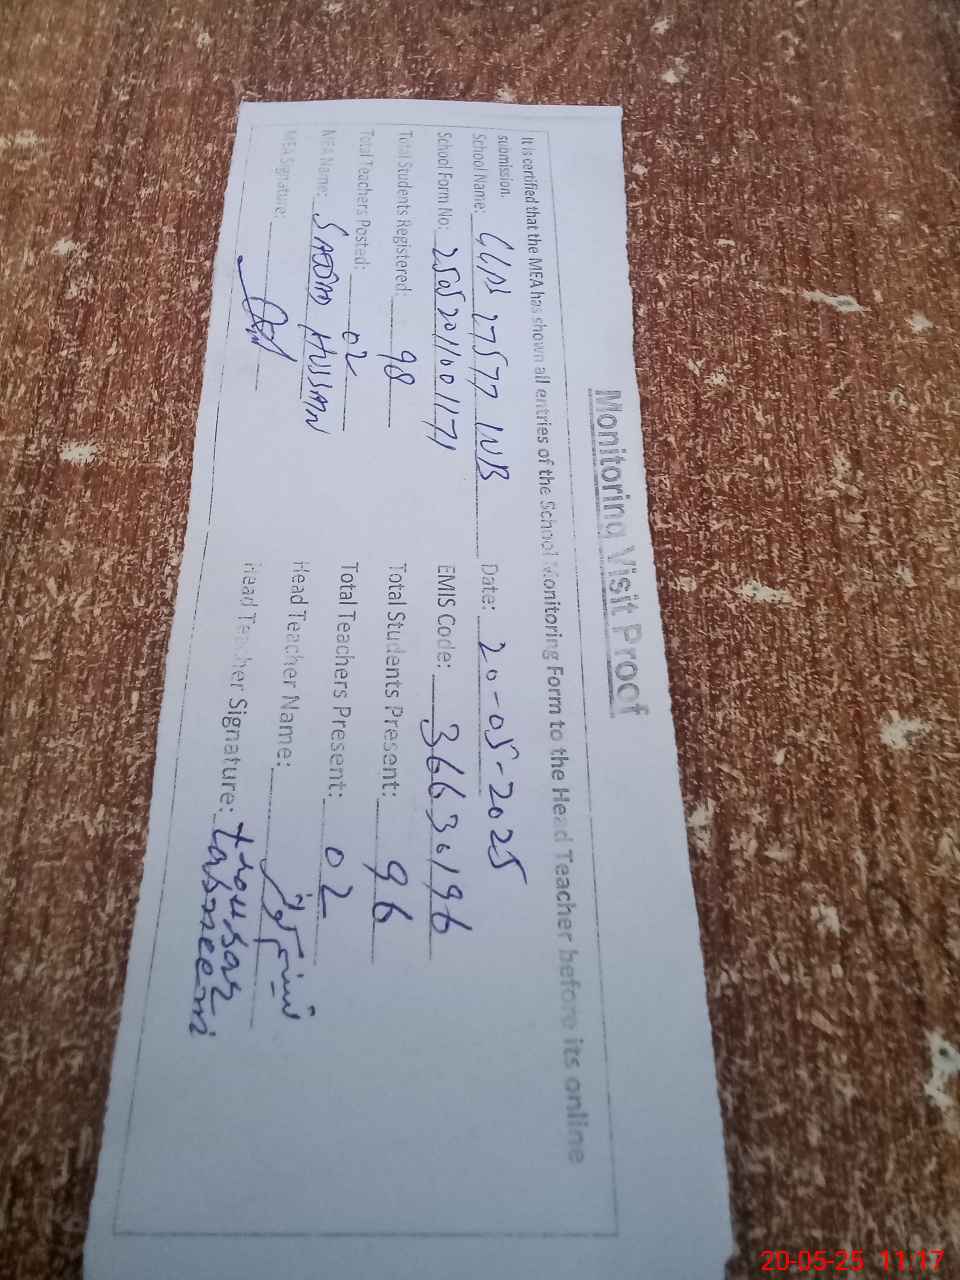 Monitoring Visit Proof
It is certified that the MEA has shown all entries of the School Monitoring Form to the Head Teacher before its online
submission.
School Name: 275 77 WB Date: 20-05-2025
School Form No: 2505201001171 EMIS Code: 36630196
Total Students Registered: 98 Total Students Present: 96
Total Teachers Posted: 02 Total Teachers Present: 02
MEA Name: SADDAM HUSSAIN Head Teacher Name:
MEA Signature: Head Teacher Signature:
tasneem
20-05-25 11:17